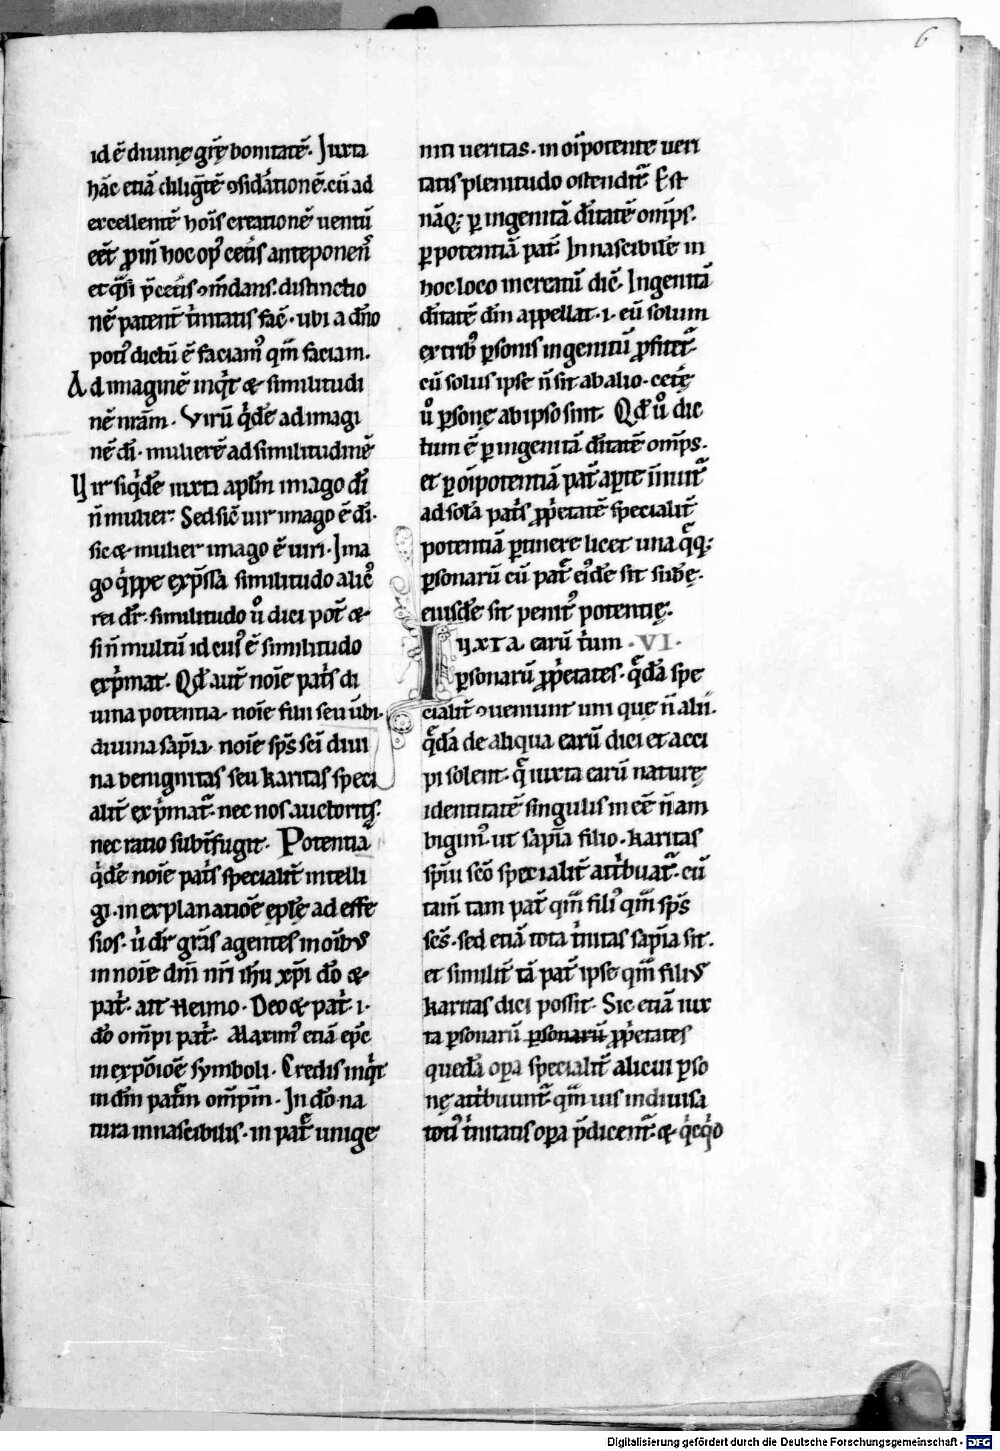 6
id ē diuinę grę̄ bonitatē. Iuxta
hāc etiā diligētē ꝯsid'ationē. cū ad
excellentē hoīs creationē uentū
eēt ꝓin hoc op' cetis anteponen
et q̄si p̄cetis ꝯm̄dans. distinctio
nē patent t'nitatis fac̄. ubi a dn̄o
poti' dictū ē faciam' qm̄ faciam.
Ad imaginē inq't & similitudi
nē nr̄am. Virū q'dē ad imagi
nē dī. mulierē ad similitudinē
Vir siq'dē iuxta aplm̄ imago dī
n̄ mulier. Sed sic̄ uir imago ē dī.
sic & mulier imago ē uiri. Ima
go q'ppe exp̄ssa similitudo alic'
rei dr̄. similitudo u° dici pot̄ &
si n̄ multū id cui' ē similitudo
exp'mat. Qd̄ aut̄ noīe pat's di
uina potentia. noīe filii seu ūbi.
diuina sap̄ia. noīe sp̄s sc̄i diui
na benignitas seu karitas speci
alit̄ exp'mat̄. nec nos auctoritas.
nec ratio subt̄fugit. Potentiā
q'dē noīe pat's specialit̄ intelli
gi. in explanatiōe ep̄lę ad effe
sios. u' dr̄ grās agentes in oībus
in noīe dn̄i nr̄i ihu xp̄i dō &
pat'. ait heimo. Deo & pat' .i.
dō om̄pi pat'. Maxim' etiā ep̄c
in expōiōe symboli. Credis inq't
in dm̄ patrē om̄pm̄. In dō na
tura innascibilis. in pat̄ unige
niti ueritas. in oīpotente ueri
tatis plenitudo ostendit̄. Est
nāq; ꝑ ingenitā ditatē om̄ps.
ꝑ potentiā pat̄. Innascibilē in
hoc loco increatū dic̄. Ingenitā
ditatē dīn appellat .i. eū solum
ex trib' ꝑsonis ingenitū ꝓfitet̄
cū solus ipse n̄ sit ab alio. cetę
u° ꝑsonę ab ipso sint. Qd̄ u° dic
tum ē ꝑ ingenitā ditatē om̄ps.
et ꝑ oīpotentiā pat̄ aꝑte innuit̄
ad solā pat's ꝓp'etatē specialit̄
potentiā ꝑtinere licet una q̄q;
ꝑsonarū cū pat̄ ei'dē sit subę.
eiusdē sit penit' potentię.
Iuxta earū t'um .VI.
ꝑsonarū ꝓp'etates. q̄dā spe
cialit̄ ꝯueniunt uni que n̄ alii.
q̄dā de aliqua earū dici et acci
pi solent. q̄ iuxta earū naturę
identitatē singulis inēē n̄ am
bigim'. ut sap̄ia filio. karitas
sp̄ui sc̄o specialit̄ att'buat̄. cū
tam̄ tam pat̄ qm̄ fili' qm̄ sp̄s
sc̄s. sed etiā tota t'nitas sap̄ia sit.
et similit̄ tā pat̄ ipse qm̄ filius
karitas dici possit. Sic etiā iux
ta ꝑsonarū ꝑsonarū ꝓp'etates
quedā oꝑa specialit̄ alicui ꝑso
nę att'buunt̄. qm̄ uis indiuisa
toti' t'nitatis oꝑa p̄dicent̄. & q'cq'd
Digitalisierung gefördert durch die Deutsche Forschungsgemeinschaft - DFG